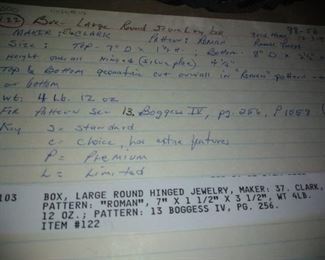 (122) Box - Large Round Jewelry
MAKER: CLARK Pattern: Roman
Size: Top - 7" D x 1½" H. ; Bottom - 8" D x 3½"
Height overall hinged (silver plate) 4½"
Top & Bottom geometric cut overall in "Roman" pattern
or bottom
Wt: 4 Lb. 12 oz
For Pattern See 13. Boggess IV, pg. 256, P 1057
Key S = Standard
C = Choice, has extra features
P = Premium
L = Limited
103 BOX, LARGE ROUND HINGED JEWELRY, MAKER: 37. CLARK,
PATTERN: "ROMAN", 7" X 1 1/2" X 3 1/2", WT 4LB.
12 OZ.; PATTERN: 13 BOGGESS IV, PG. 256.
ITEM #122